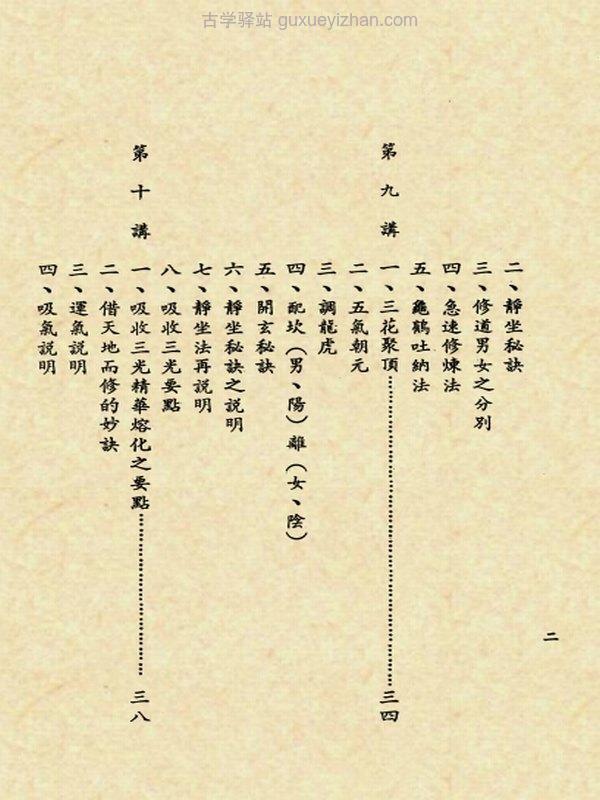 古学驿站 guxueyizhan.com
二、靜坐秘訣
三、修道男女之分別
四、急速修煉法
五、龜鶴吐納法
第九講
一、三花聚頂……………………………………三四
二、五氣朝元
三、調龍虎
四、配坎（男、陽）離（女、陰）
五、開玄秘訣
六、靜坐秘訣之説明
七、靜坐法再説明
八、吸收三光要點
第十講
一、吸收三光精華熔化之要點……………………三八
二、借天地而修的妙訣
三、運氣説明
四、吸氣説明
二